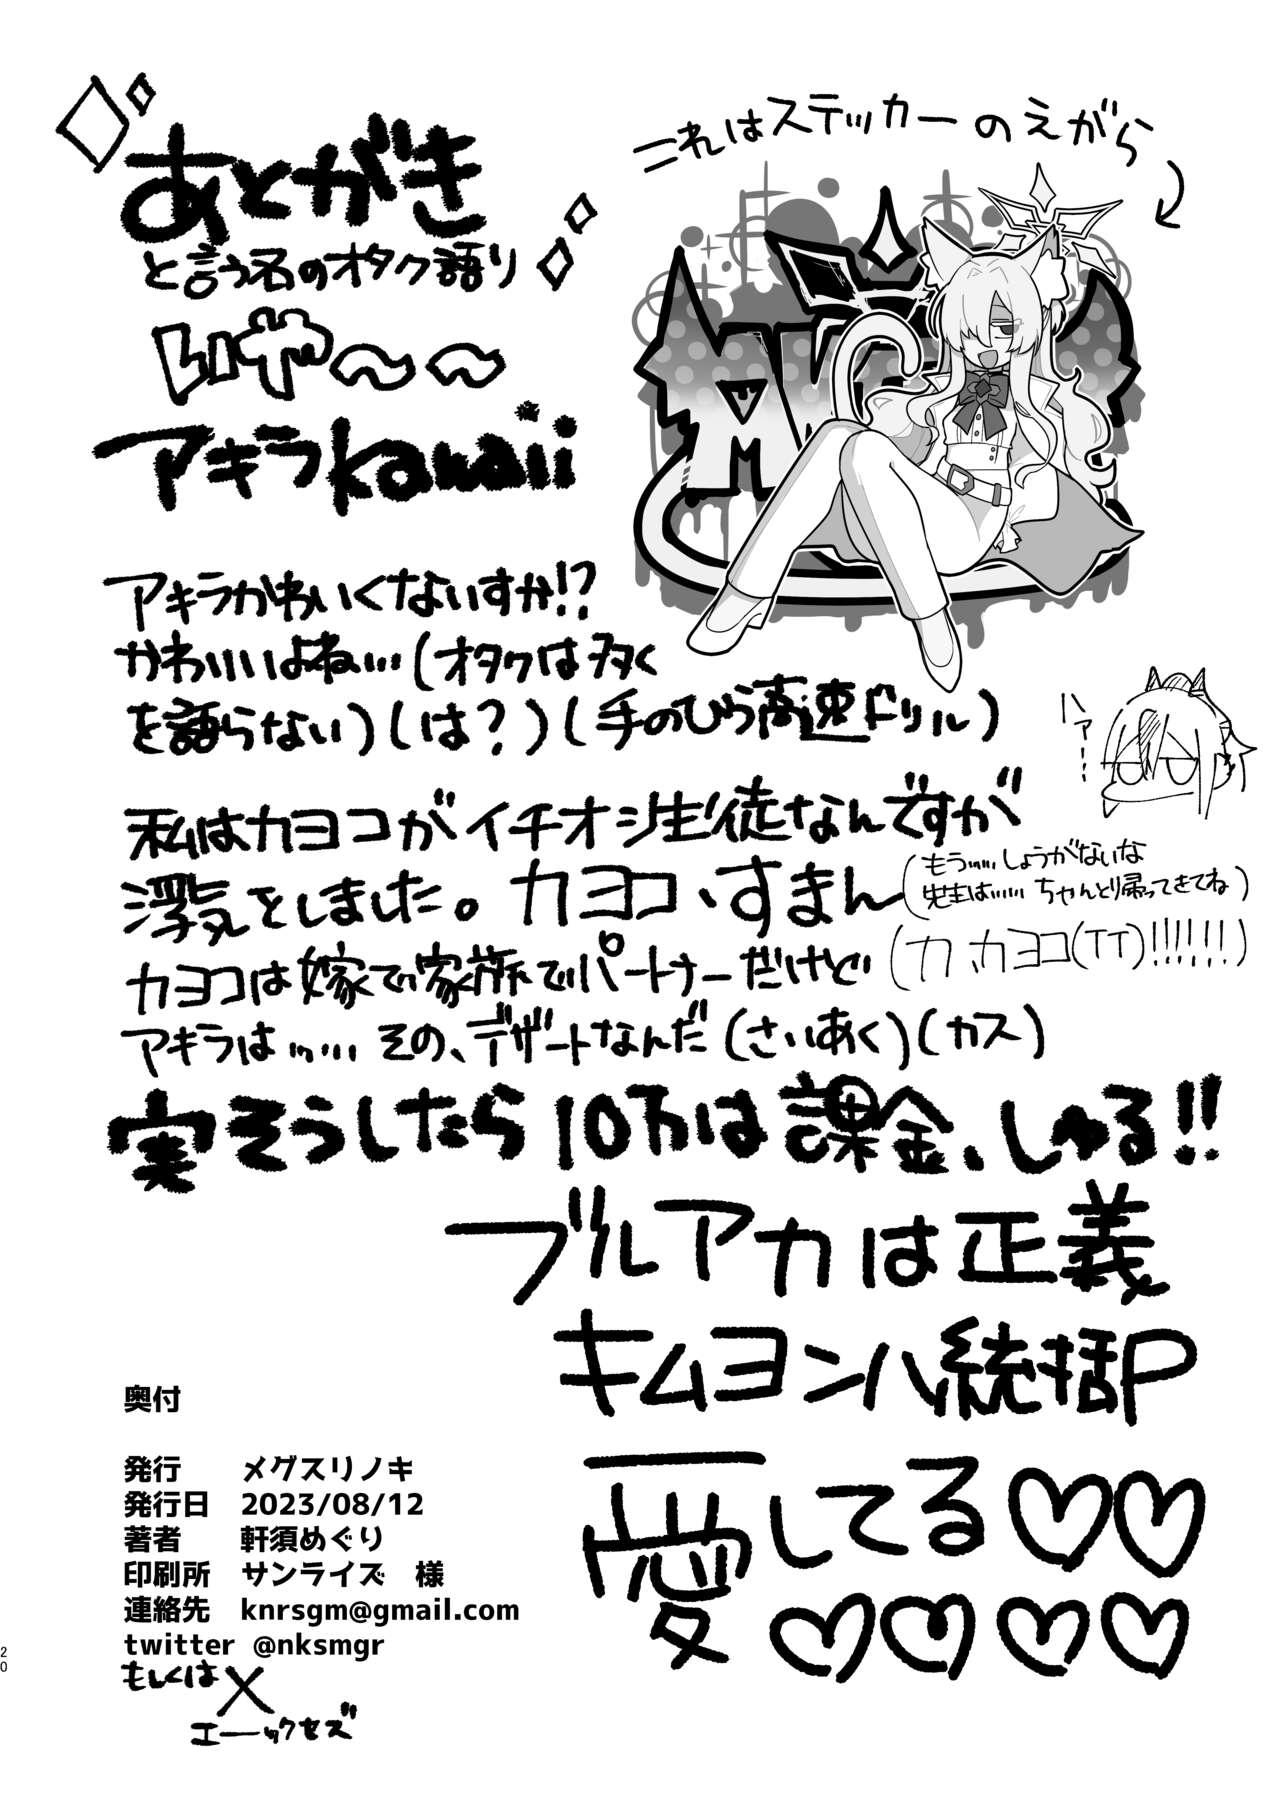 あとがき
と言う名のオタク語り
いや～～
アキラkawaii
これはステッカーのえがら
アキラかわいくないすか!?
かわいいよね…(オタクは多く
を語らない)(は?)(手のひら高速ドリル)
ハァ…
私はカヨコがイチオシ生徒なんですが
浮気をしました。カヨコ、すまん
(もう……しょうがないな
先生は…… ちゃんと帰ってきてね)
カヨコは嫁で家族でパートナーだけど
(カ、カヨコ(TT)!!!!!!)
アキラは…… その、デザートなんだ(さいあく)(カス)
実そうしたら10万は課金、しゅる!!
ブルアカは正義
キムヨンハ統括P
愛してる♡♡
♡♡♡♡
奥付
発行 メグスリノキ
発行日 2023/08/12
著者 軒須めぐり
印刷所 サンライズ 様
連絡先 knrsgm@gmail.com
twitter @nksmgr
もしくは X
エーックセズ
20